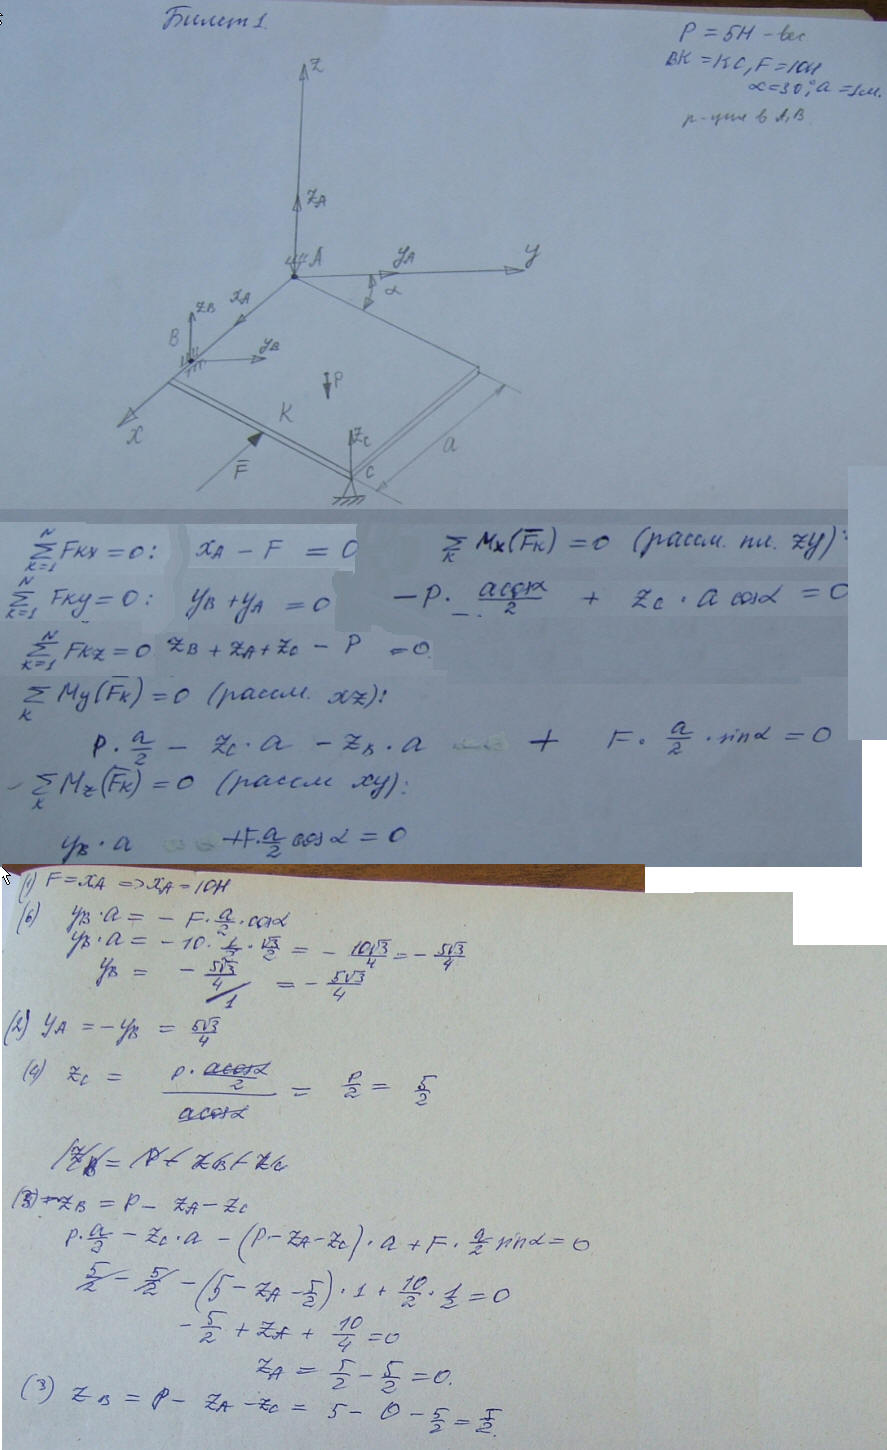 Билет 1.
P = 5Н – вес
BK = KC, F = 10Н
α = 30°; a = 1м.
р-ции в A, B
z
zA
A
yA
y
α
xA
zB
B
yB
x
P
K
zC
C
a
F̅
∑ᴺₖ₌₁ Fkx = 0: xA – F = 0
∑ᴺₖ₌₁ Fky = 0: yB + yA = 0
∑ᴺₖ₌₁ Fkz = 0 zB + zA + zC – P = 0.
∑ₖ Mx(F̅k) = 0 (рассм. пл. zy):
–P · acosα/2 + zC · a cosα = 0
∑ₖ My(F̅k) = 0 (рассм. xz):
P · a/2 – zC · a – zB · a + F · a/2 · sinα = 0
– ∑ₖ Mz(F̅k) = 0 (рассм xy):
yB · a + F · a/2 cosα = 0
(1) F = xA => xA = 10Н
(6) yB · a = – F · a/2 · cosα
yB · a = – 10 · 1/2 · √3/2 = – 10√3/4 = – 5√3/4
yB = – 5√3/4 / 1 = – 5√3/4
(2) yA = – yB = 5√3/4
(4) zC = P · acosα/2 / acosα = P/2 = 5/2
zB = P + zB + zC
(3) zB = P – zA – zC
P · a/2 – zC · a – (P – zA – zC) · a + F · a/2 sinα = 0
5/2 – 5/2 – (5 – zA – 5/2) · 1 + 10/2 · 1/2 = 0
– 5/2 + zA + 10/4 = 0
zA = 5/2 – 5/2 = 0.
(3) zB = P – zA – zC = 5 – 0 – 5/2 = 5/2.